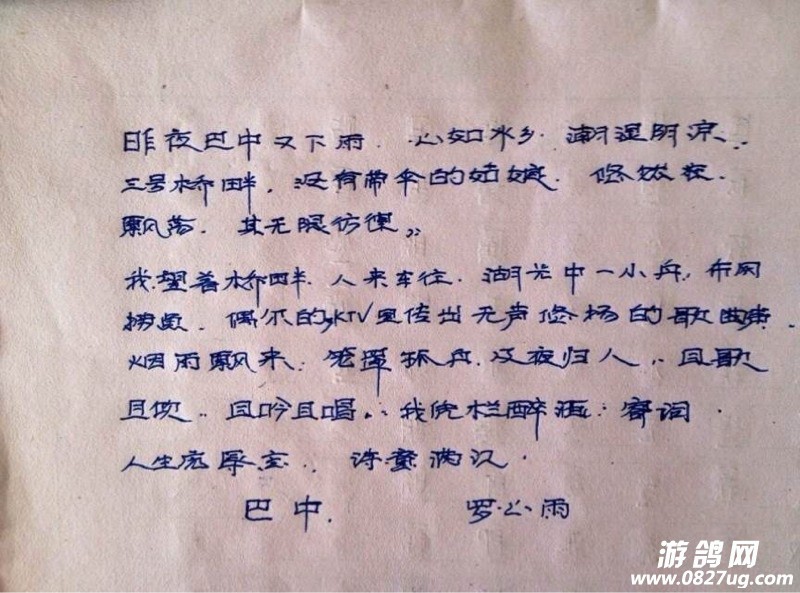 昨夜巴中又下雨. 心如水乡. 潮湿阴凉..
三号桥畔. 没有带伞的姑娘. 修发在.
飘荡. 其无限彷徨。
我望着桥畔. 人来车往. 湖光中一小舟. 布网
捞鱼. 偶尔的KTV里传出无声悠扬的歌曲.
烟雨飘来. 笼罩孤舟. 夜归人.. 且歌
且饮.. 且吟且唱.. 我凭栏醉酒. 寄词.
人生
巴中. 罗心雨
游鸽网
www.0827ug.com